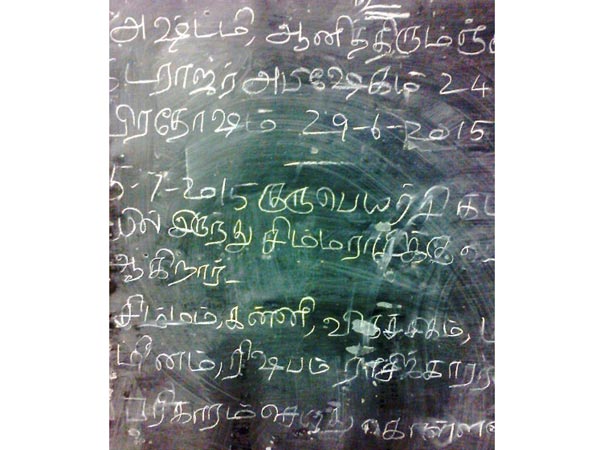 அஷ்டமி, ஆனித்திருமஞ்
டராஜர் அபிஷேகம் 24
பிரதோஷம் 29-6-2015
5-7-2015 குருபெயர்ச்சி கட
யில் இருந்து சிம்மராசிக்கு
ஆகிறார்.
சிம்மம், கன்னி, விருச்சிகம்,
மீனம், ரிஷபம் ராசிக்காரர
பரிகாரம் செய்து கொள்ள